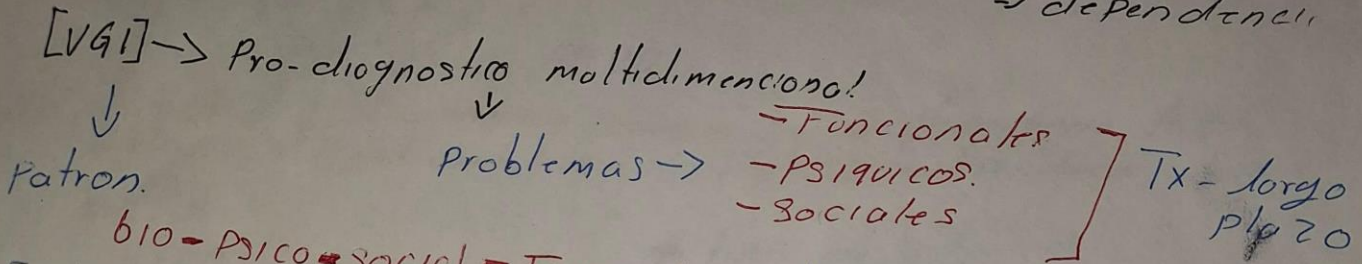 → dependenci
[VGI] → Pro-diognostico moltidimencional
↓ ↓
Patron. Problemas → - Funcionales
- Psiquicos.
- Sociales
Tx - lorgo
plazo
bio - psico - social -